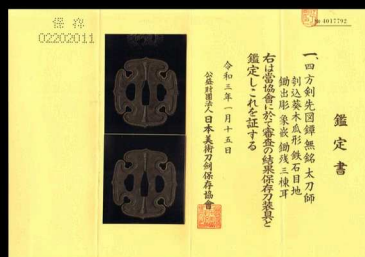 鑑定書
一、四方剣先図鐔 無銘 太刀師
刳込葵木瓜形 鉄石目地
鋤出彫 象嵌 鋤残三棟耳
右は當協會に於て審査の結果保存刀装具と
鑑定しこれを証する
令和三年一月十五日
公益財團法人日本美術刀剣保存協會
保存
02202011
№ 4017792